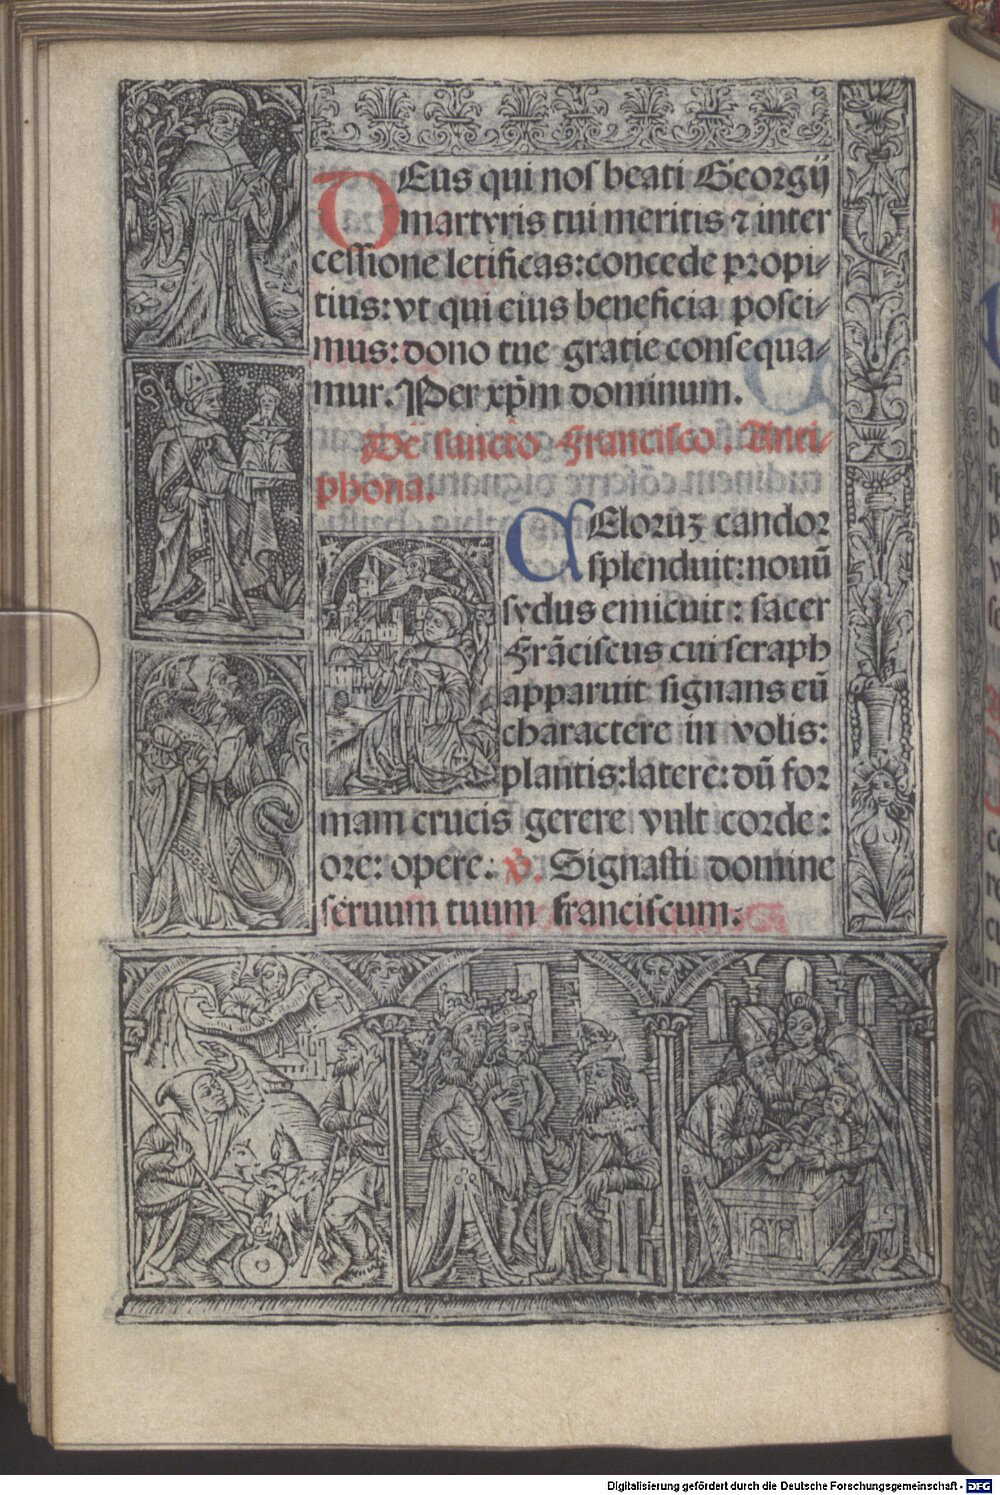 DEus qui nos beati Georgij
martyris tui meritis ⁊ inter
cessione letificas: concede propi⸗
tius: vt qui eius beneficia posci⸗
mus: dono tue gratie consequa⸗
mur. Per xp̄m dominum.
De sancto Francisco. Anti⸗
phona.
CEloruꝫ candor
splenduit: nouū
sydus emicuit: sacer
Frāciscus cui seraph
apparuit signans eū
charactere in volis:
plantis: latere: dū for
mam crucis gerere vult corde:
ore: opere. ℣. Signasti domine
seruum tuum franciscum.
Digitalisierung gefördert durch die Deutsche Forschungsgemeinschaft - DFG